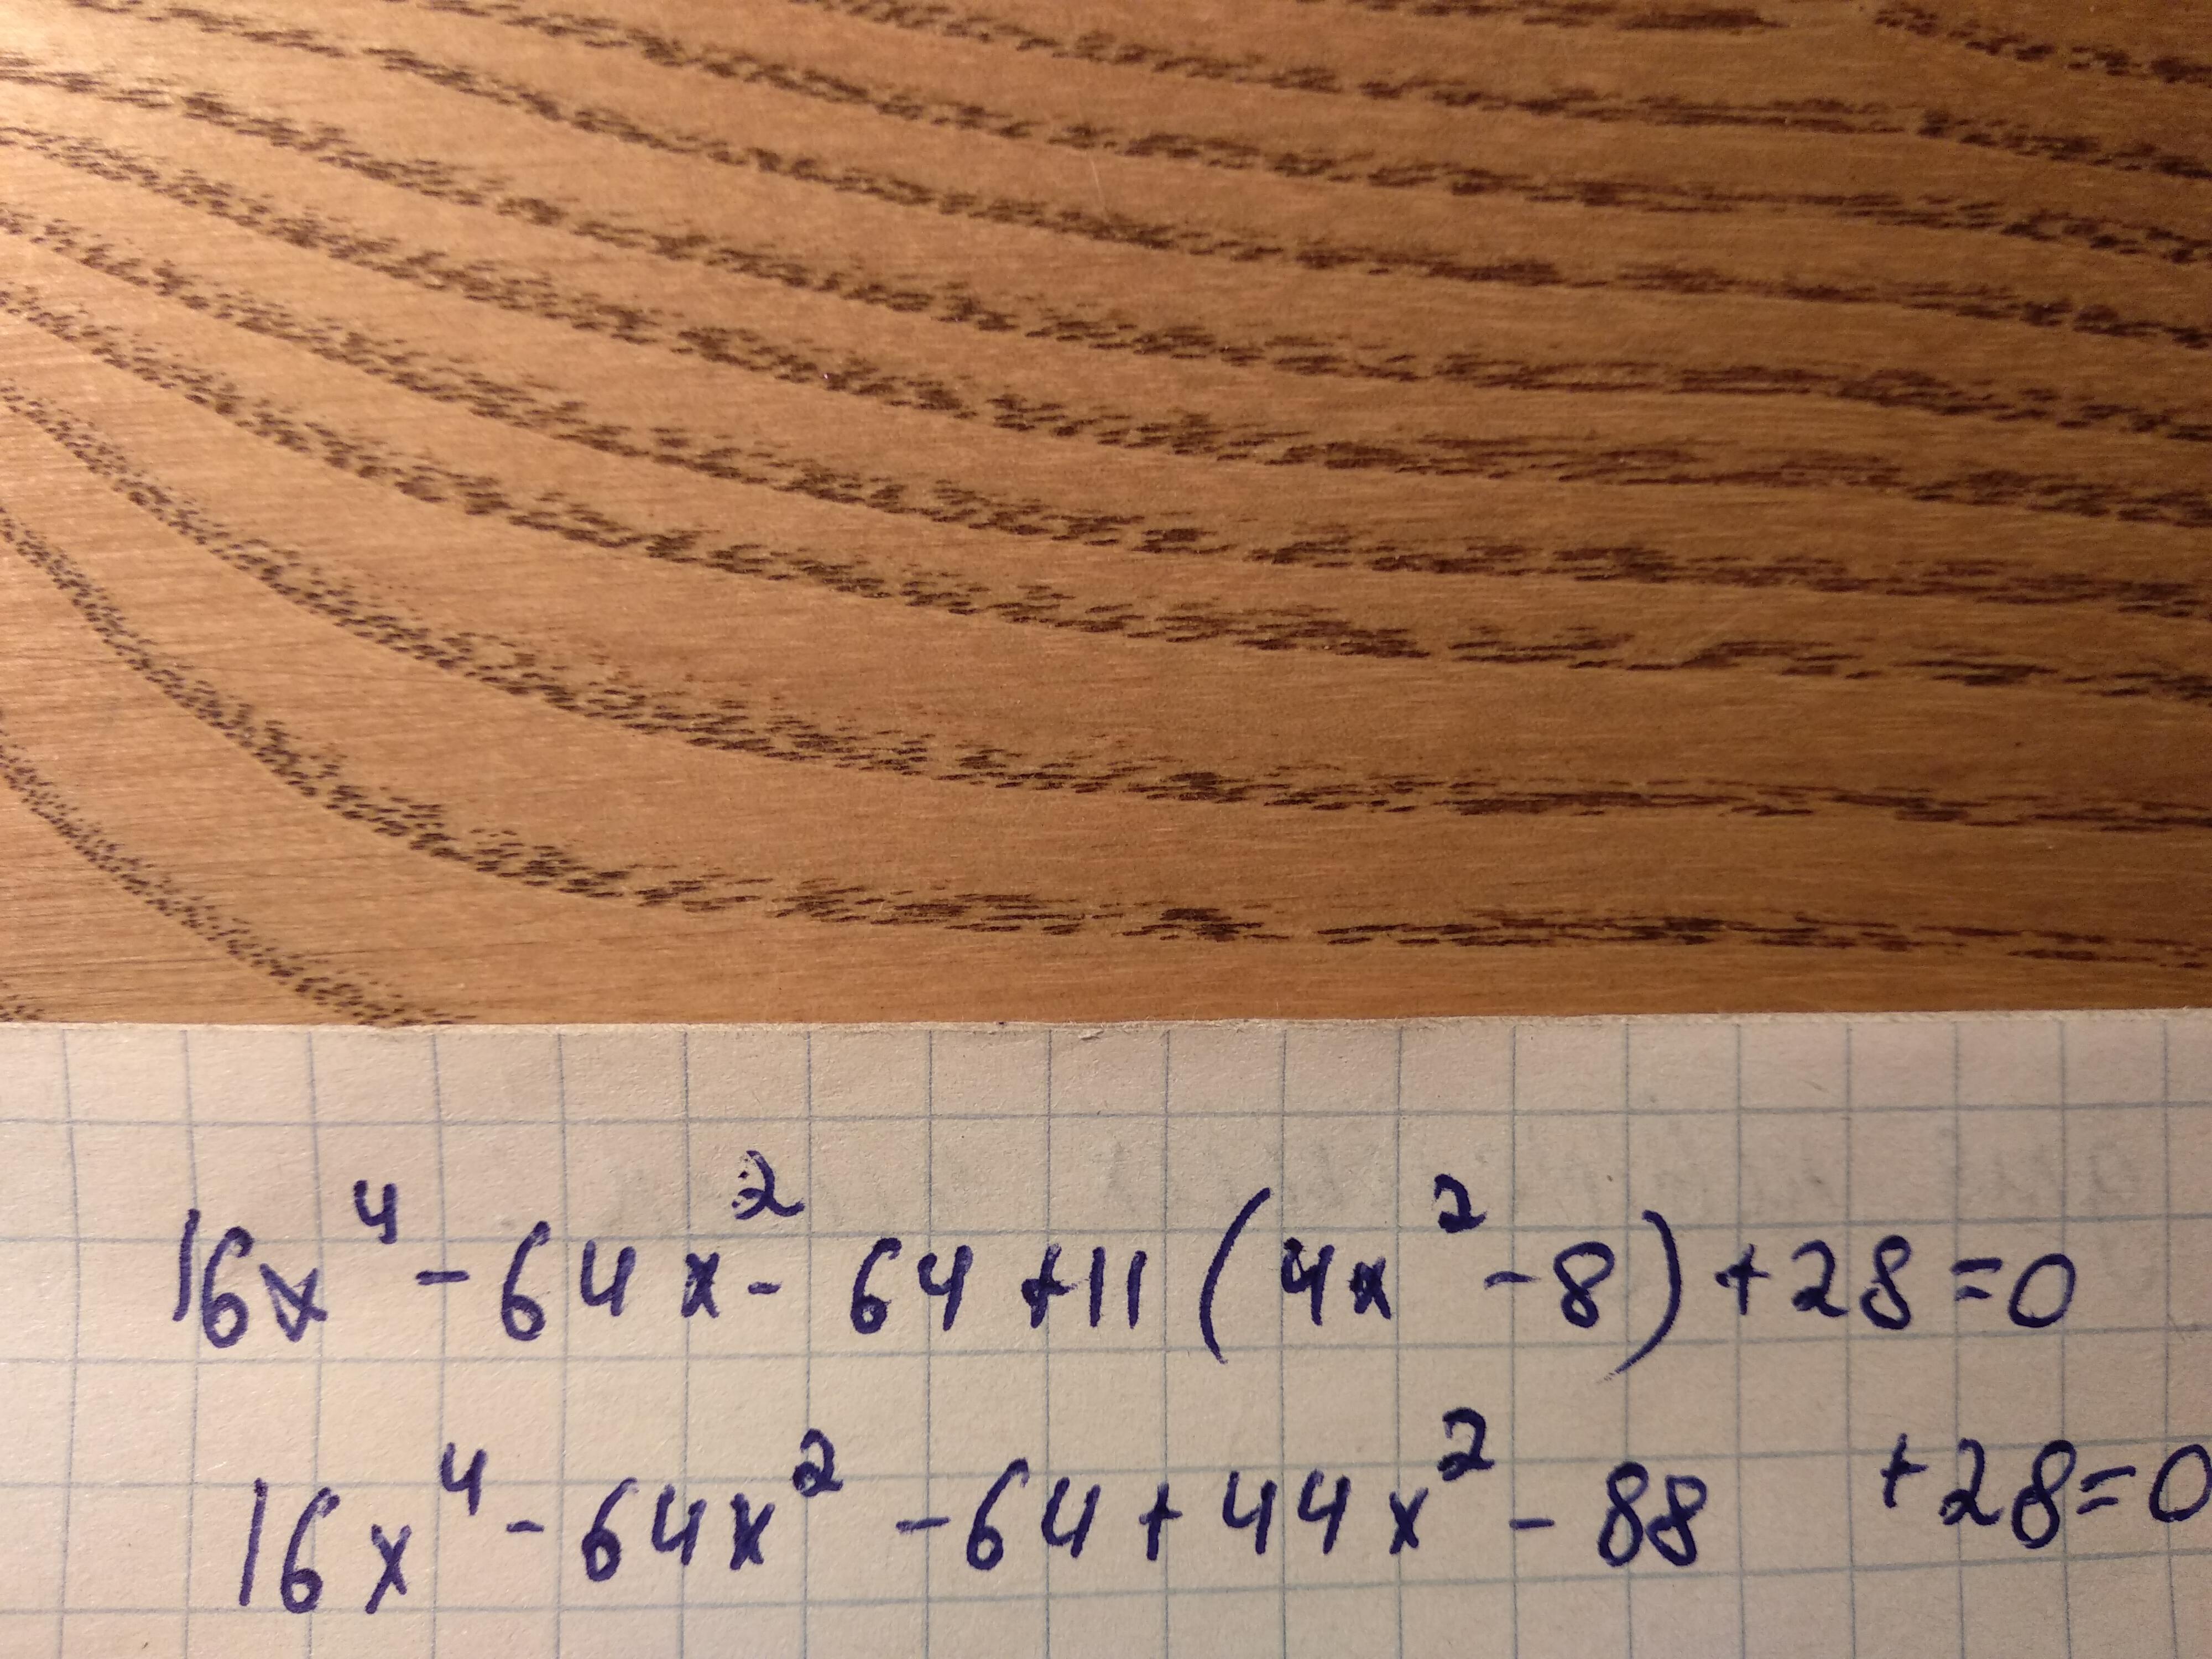 16x⁴ - 64x² - 64 + 11(4x² - 8) + 28 = 0
16x⁴ - 64x² - 64 + 44x² - 88 + 28 = 0